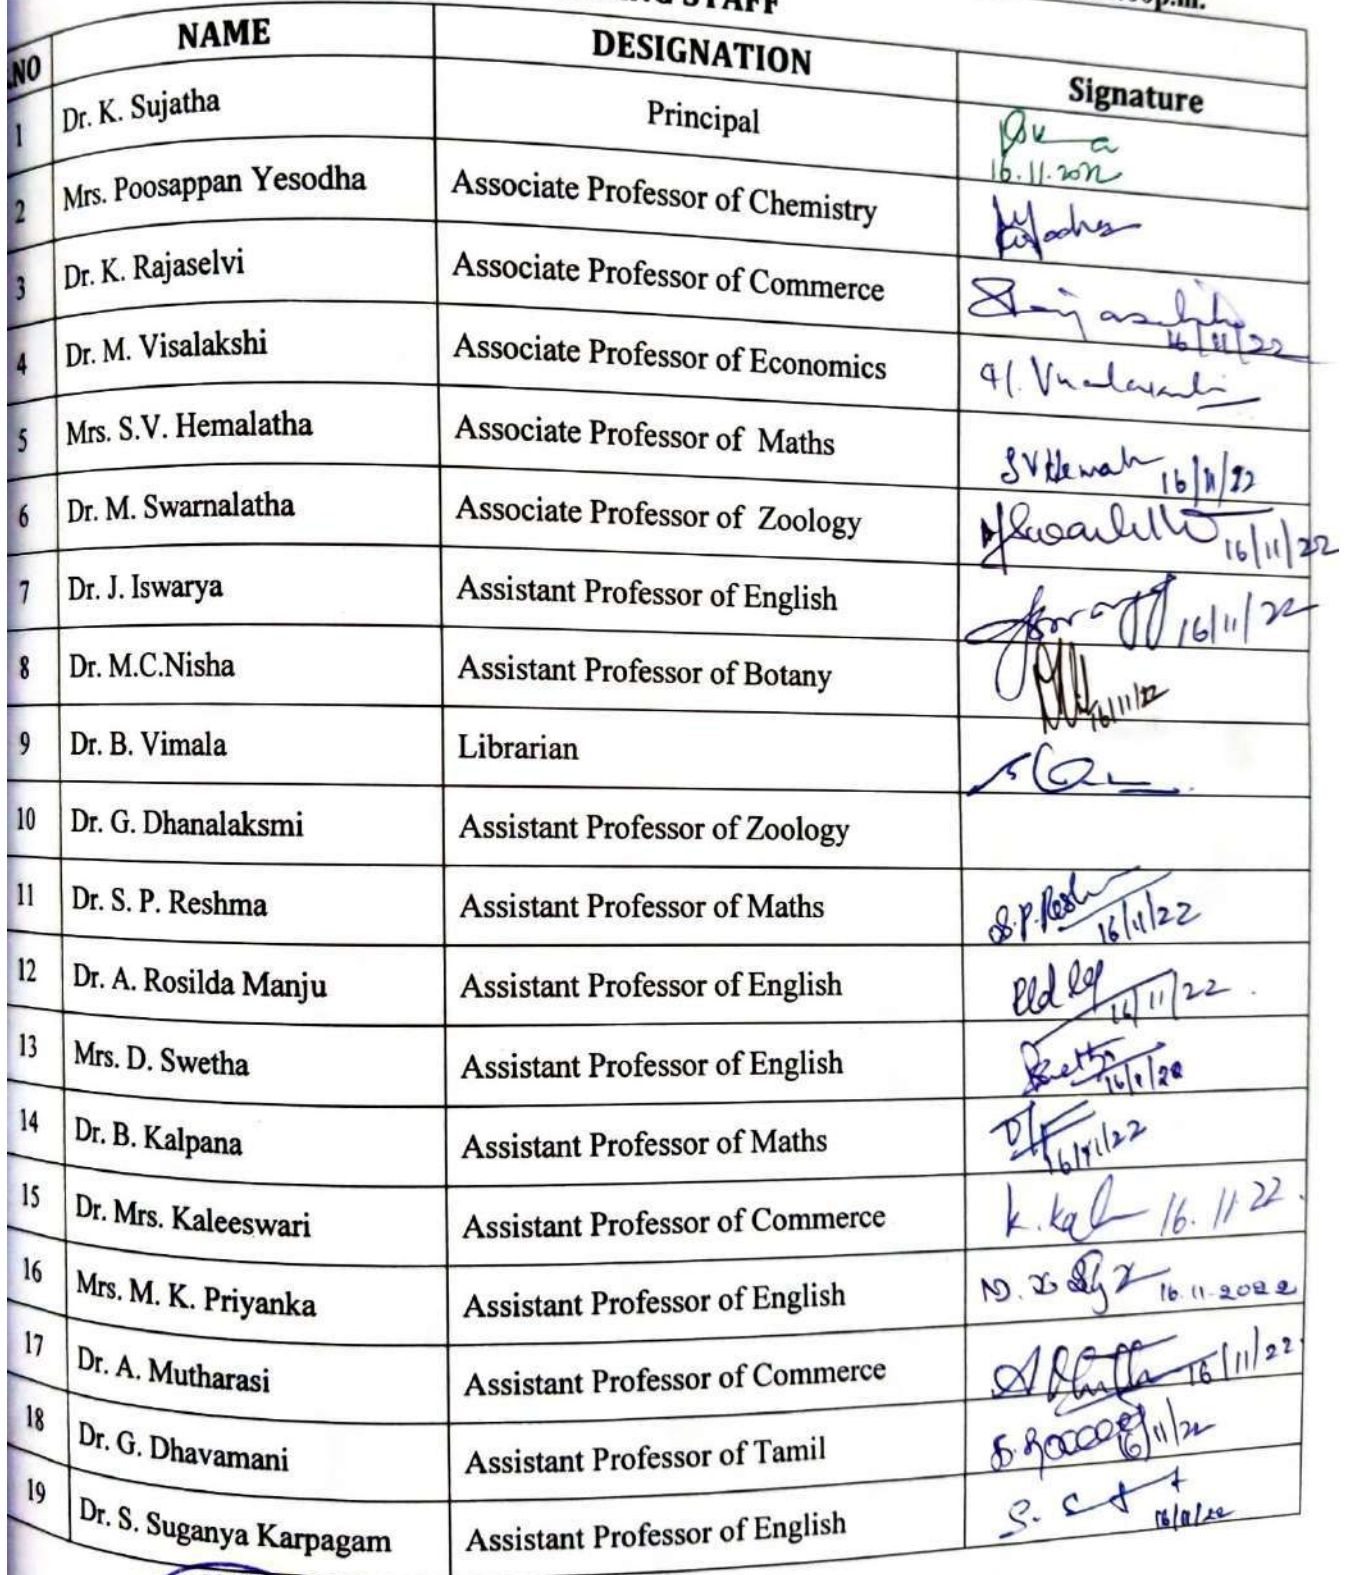 STAFF
.NO NAME DESIGNATION Signature
1 Dr. K. Sujatha Principal
16.11.2022
2 Mrs. Poosappan Yesodha Associate Professor of Chemistry
3 Dr. K. Rajaselvi Associate Professor of Commerce
16/11/22
4 Dr. M. Visalakshi Associate Professor of Economics
5 Mrs. S.V. Hemalatha Associate Professor of Maths 16/11/22
6 Dr. M. Swarnalatha Associate Professor of Zoology 16/11/22
7 Dr. J. Iswarya Assistant Professor of English 16/11/22
8 Dr. M.C.Nisha Assistant Professor of Botany 16/11/22
9 Dr. B. Vimala Librarian
10 Dr. G. Dhanalaksmi Assistant Professor of Zoology
11 Dr. S. P. Reshma Assistant Professor of Maths 16/11/22
12 Dr. A. Rosilda Manju Assistant Professor of English 16/11/22
13 Mrs. D. Swetha Assistant Professor of English 16/11/22
14 Dr. B. Kalpana Assistant Professor of Maths 16/11/22
15 Dr. Mrs. Kaleeswari Assistant Professor of Commerce 16.11.22
16 Mrs. M. K. Priyanka Assistant Professor of English 16.11.2022
17 Dr. A. Mutharasi Assistant Professor of Commerce 16/11/22
18 Dr. G. Dhavamani Assistant Professor of Tamil 16/11/22
19 Dr. S. Suganya Karpagam Assistant Professor of English 16/11/22